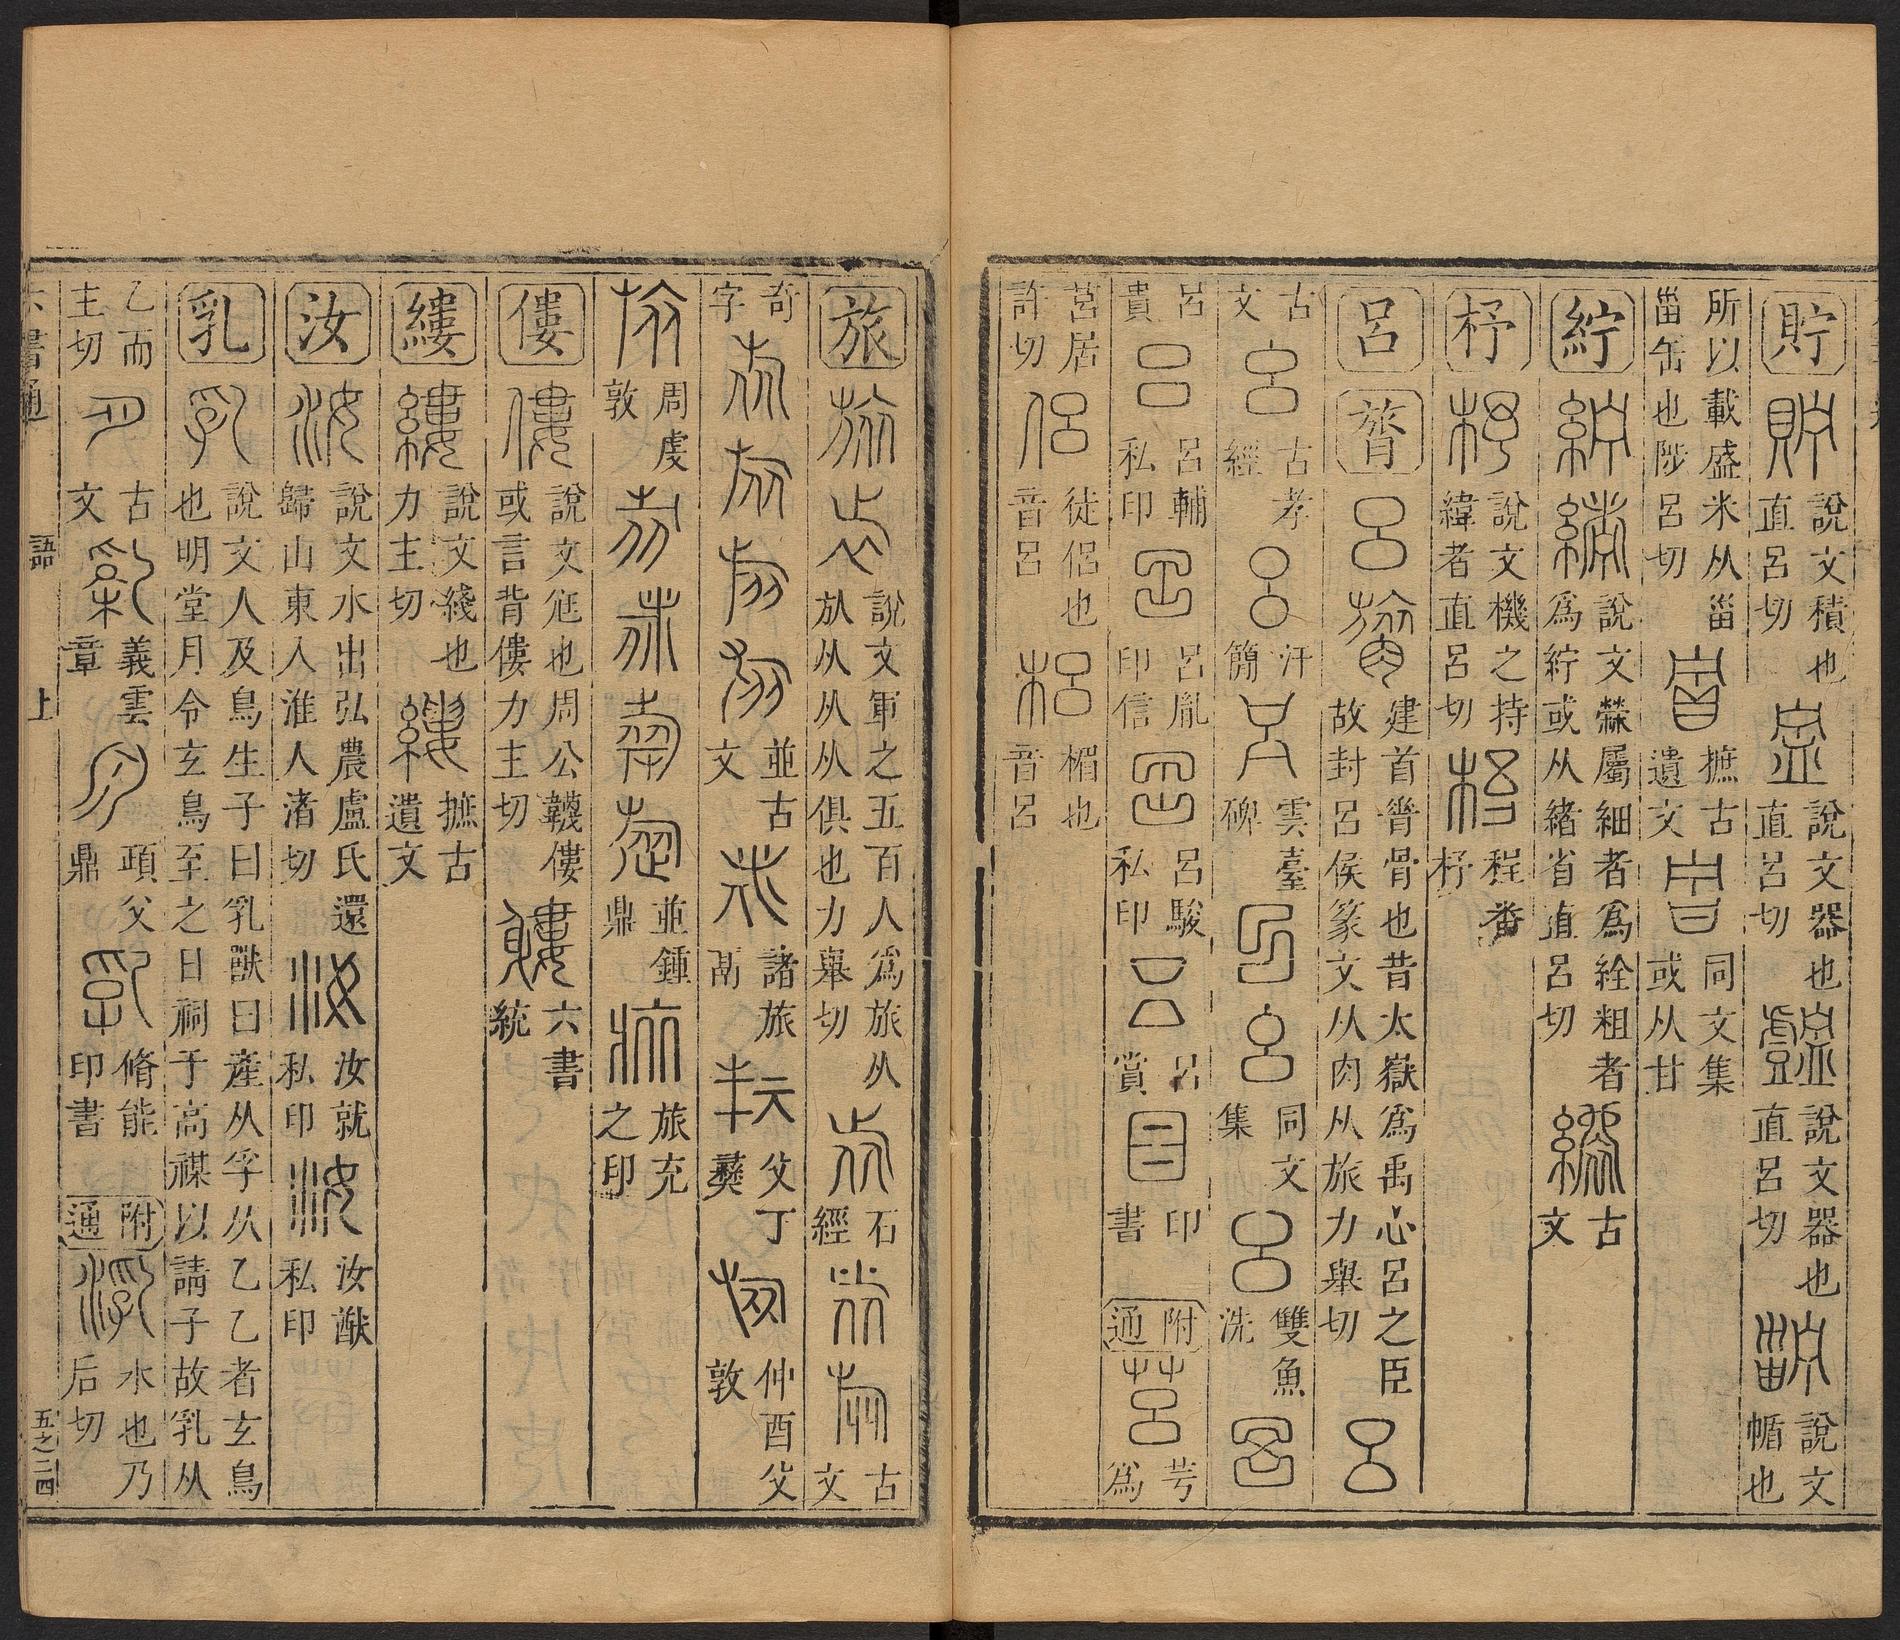 貯 說文積也直呂切 說文器也直呂切 說文器也直呂切 說文㡒也
所以載盛米从甾甾缶也陟呂切 摭古遺文 同文集或从甘
紵 說文䋾屬細者爲絟粗者爲紵或从緒省直呂切 古文
杼 說文機之持緯者直呂切 程 杼
呂 膂 建首脊骨也昔太嶽爲禹心呂之臣故封呂侯篆文从肉从旅力舉切
古文 古孝經 汗簡 雲臺碑 同文集 雙魚洗
呂貴 呂輔私印 呂胤印信 呂駿私印 呂賞 印書 附通 莒 芌爲
莒居許切 侶 徒侶也音呂 梠 楣也音呂
旅 說文軍之五百人爲旅从㫃从从从俱也力舉切 石經 古文
奇字 並古文 諸旅鬲 父丁彝 仲酉父敦
周虔敦 並鍾鼎 旅充之印
僂 說文尫也周公韈僂或言背僂力主切 六書統
縷 說文綫也力主切 摭古遺文
汝 說文水出弘農盧氏還歸山東入淮人渚切 汝就私印 汝猷私印
乳 說文人及鳥生子曰乳獸曰產从孚从乙乙者玄鳥也明堂月令玄鳥至之日祠于高禖以請子故乳从
乙而主切 古文 義雲章 頙父鼎 脩能印書 附通 水也乃后切
六書通 語 上 五之二四